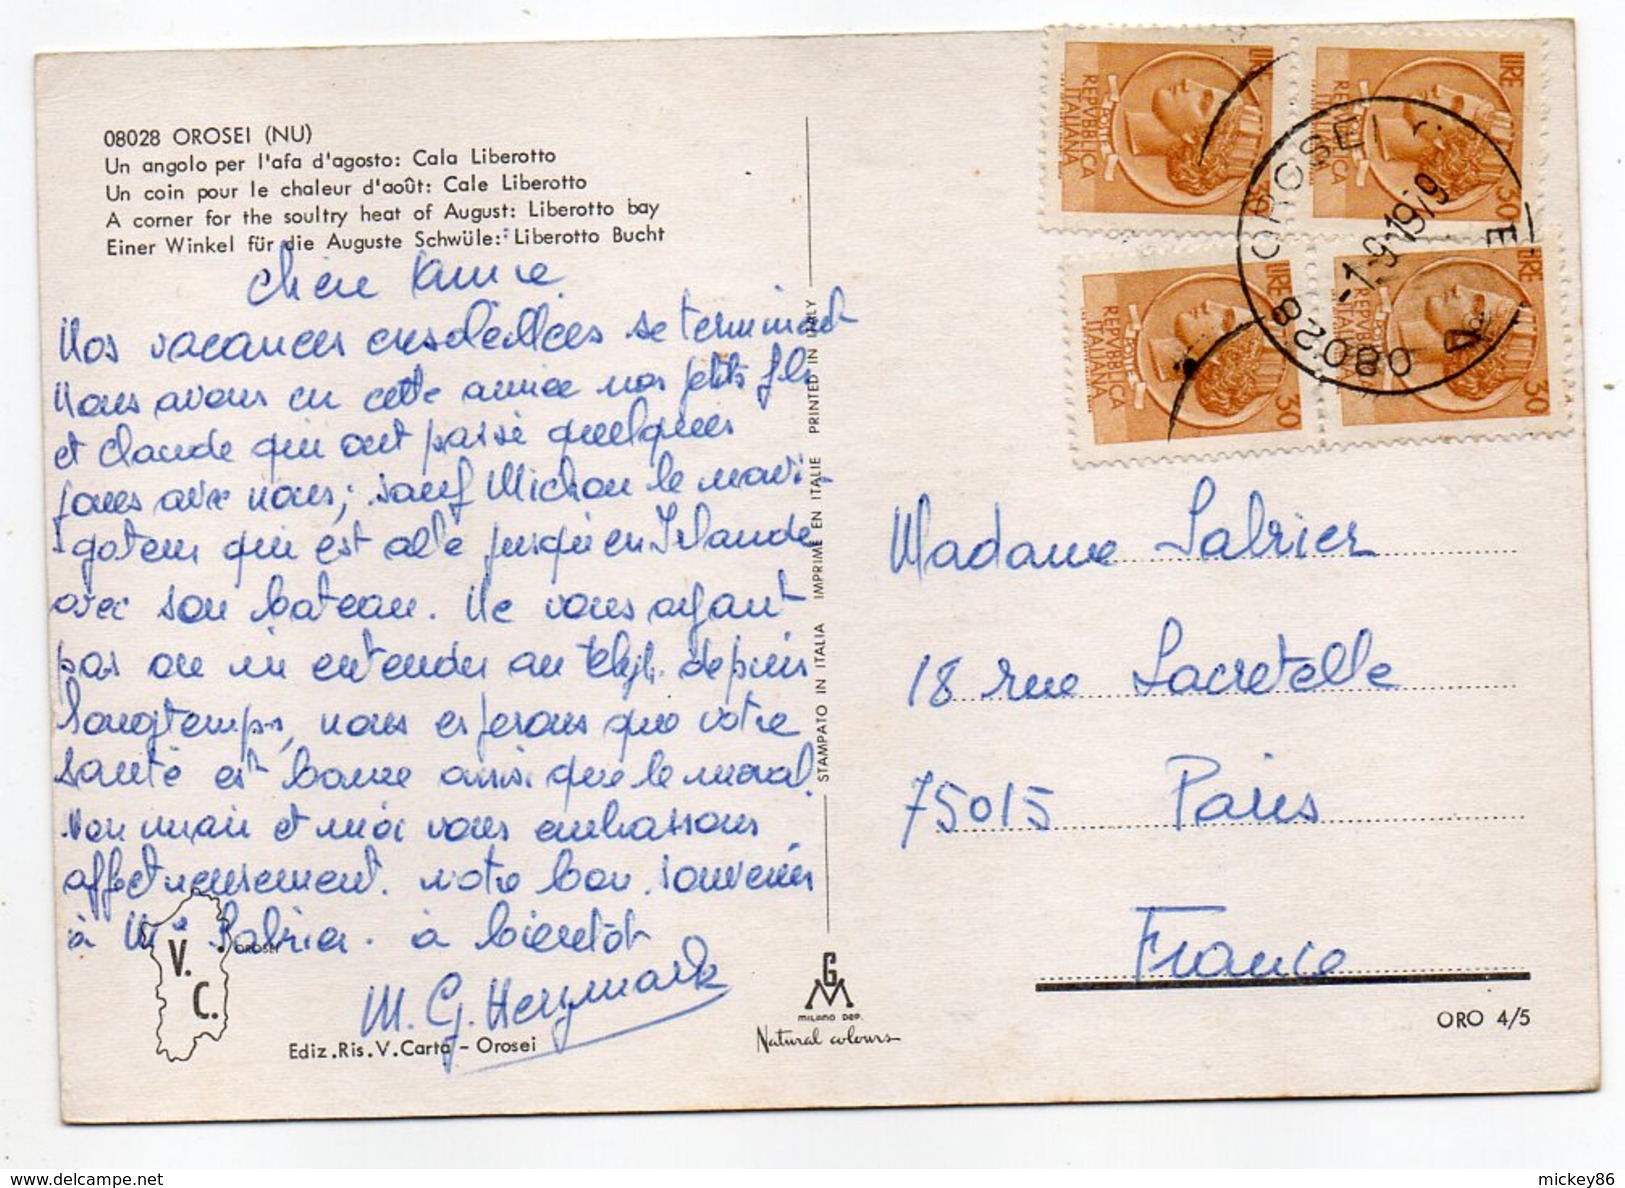 08028 OROSEI (NU)
Un angolo per l'afa d'agosto: Cala Liberotto
Un coin pour le chaleur d'août: Cale Liberotto
A corner for the soultry heat of August: Liberotto bay
Einer Winkel für die Auguste Schwüle: Liberotto Bucht
Chère
Nos vacances ensoleillées se terminent
Nous avons eu cette année nos petits fils
et Claude qui ont passé quelques
jours avec nous; sauf Michou le navi-
gateur qui est allé jusqu'en Irlande
avec son bateau. Ne vous ayant
pas vu ni entendu au téléph. depuis
longtemps, nous espérons que votre
santé est bonne ainsi que le moral.
Mon mari et moi vous embrassons
affectueusement. notre bon souvenir
à Mr Labrier. à bientôt
M. G. Herymark
V. C.
OROSEI
Ediz.Ris.V.Carta - Orosei
STAMPATO IN ITALIA IMPRIMÉ EN ITALIE PRINTED IN ITALY
GM
MILANO DEP.
Natural colours
LIRE 30
REPVBBLICA ITALIANA
POSTE
LIRE 30
REPVBBLICA ITALIANA
POSTE
LIRE 30
REPVBBLICA ITALIANA
POSTE
LIRE 30
REPVBBLICA ITALIANA
POSTE
08028 OROSEI
-1.9.1979
Madame Labrier
18 rue Lacretelle
75015 Paris
France
ORO 4/5
mickey86